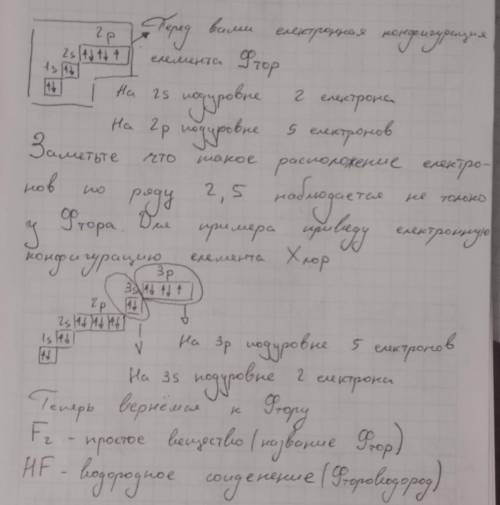 2p
Перед вами електронная конфигурация
2s ↑↓ ↑↓ ↑
елемента Фтор
1s ↑↓
↑↓
На 2s подуровне 2 електрона
На 2p подуровне 5 електронов
Заметьте что такое расположение електро-
нов по ряду 2,5 наблюдается не только
у Фтора. Для примера приведу електронную
конфигурацию елемента Хлор
3p
3s ↑↓ ↑↓ ↑
2p ↑↓
2s ↑↓ ↑↓ ↑↓
1s ↑↓
↑↓
На 3p подуровне 5 електронов
На 3s подуровне 2 електрона
Теперь вернёмся к Фтору
F2 - простое вещество (название Фтор)
HF - водородное соиденение (Фтороводород)